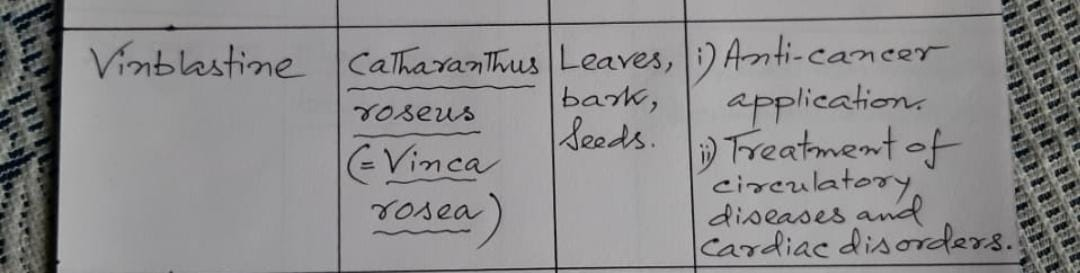 Vinblastine
Catharanthus
roseus
(= Vinca
rosea)
Leaves,
bark,
Seeds.
i) Anti-cancer
application.
ii) Treatment of
circulatory
diseases and
cardiac disorders.